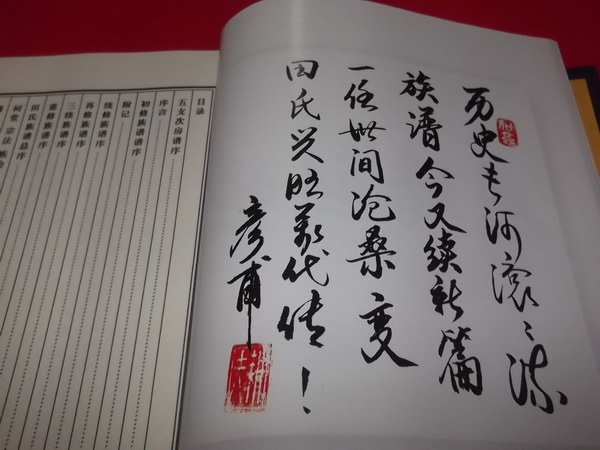 历史长河滚滚流
族谱今又续新篇
一任世间沧桑变
田氏兴旺万代传！
彦甫
目录
五支次房谱序
序言
初修族谱谱序
附记
续修族谱序
再修族谱序
三续族谱序
重修族谱序
田氏族谱总序
祠堂 宗法 族会